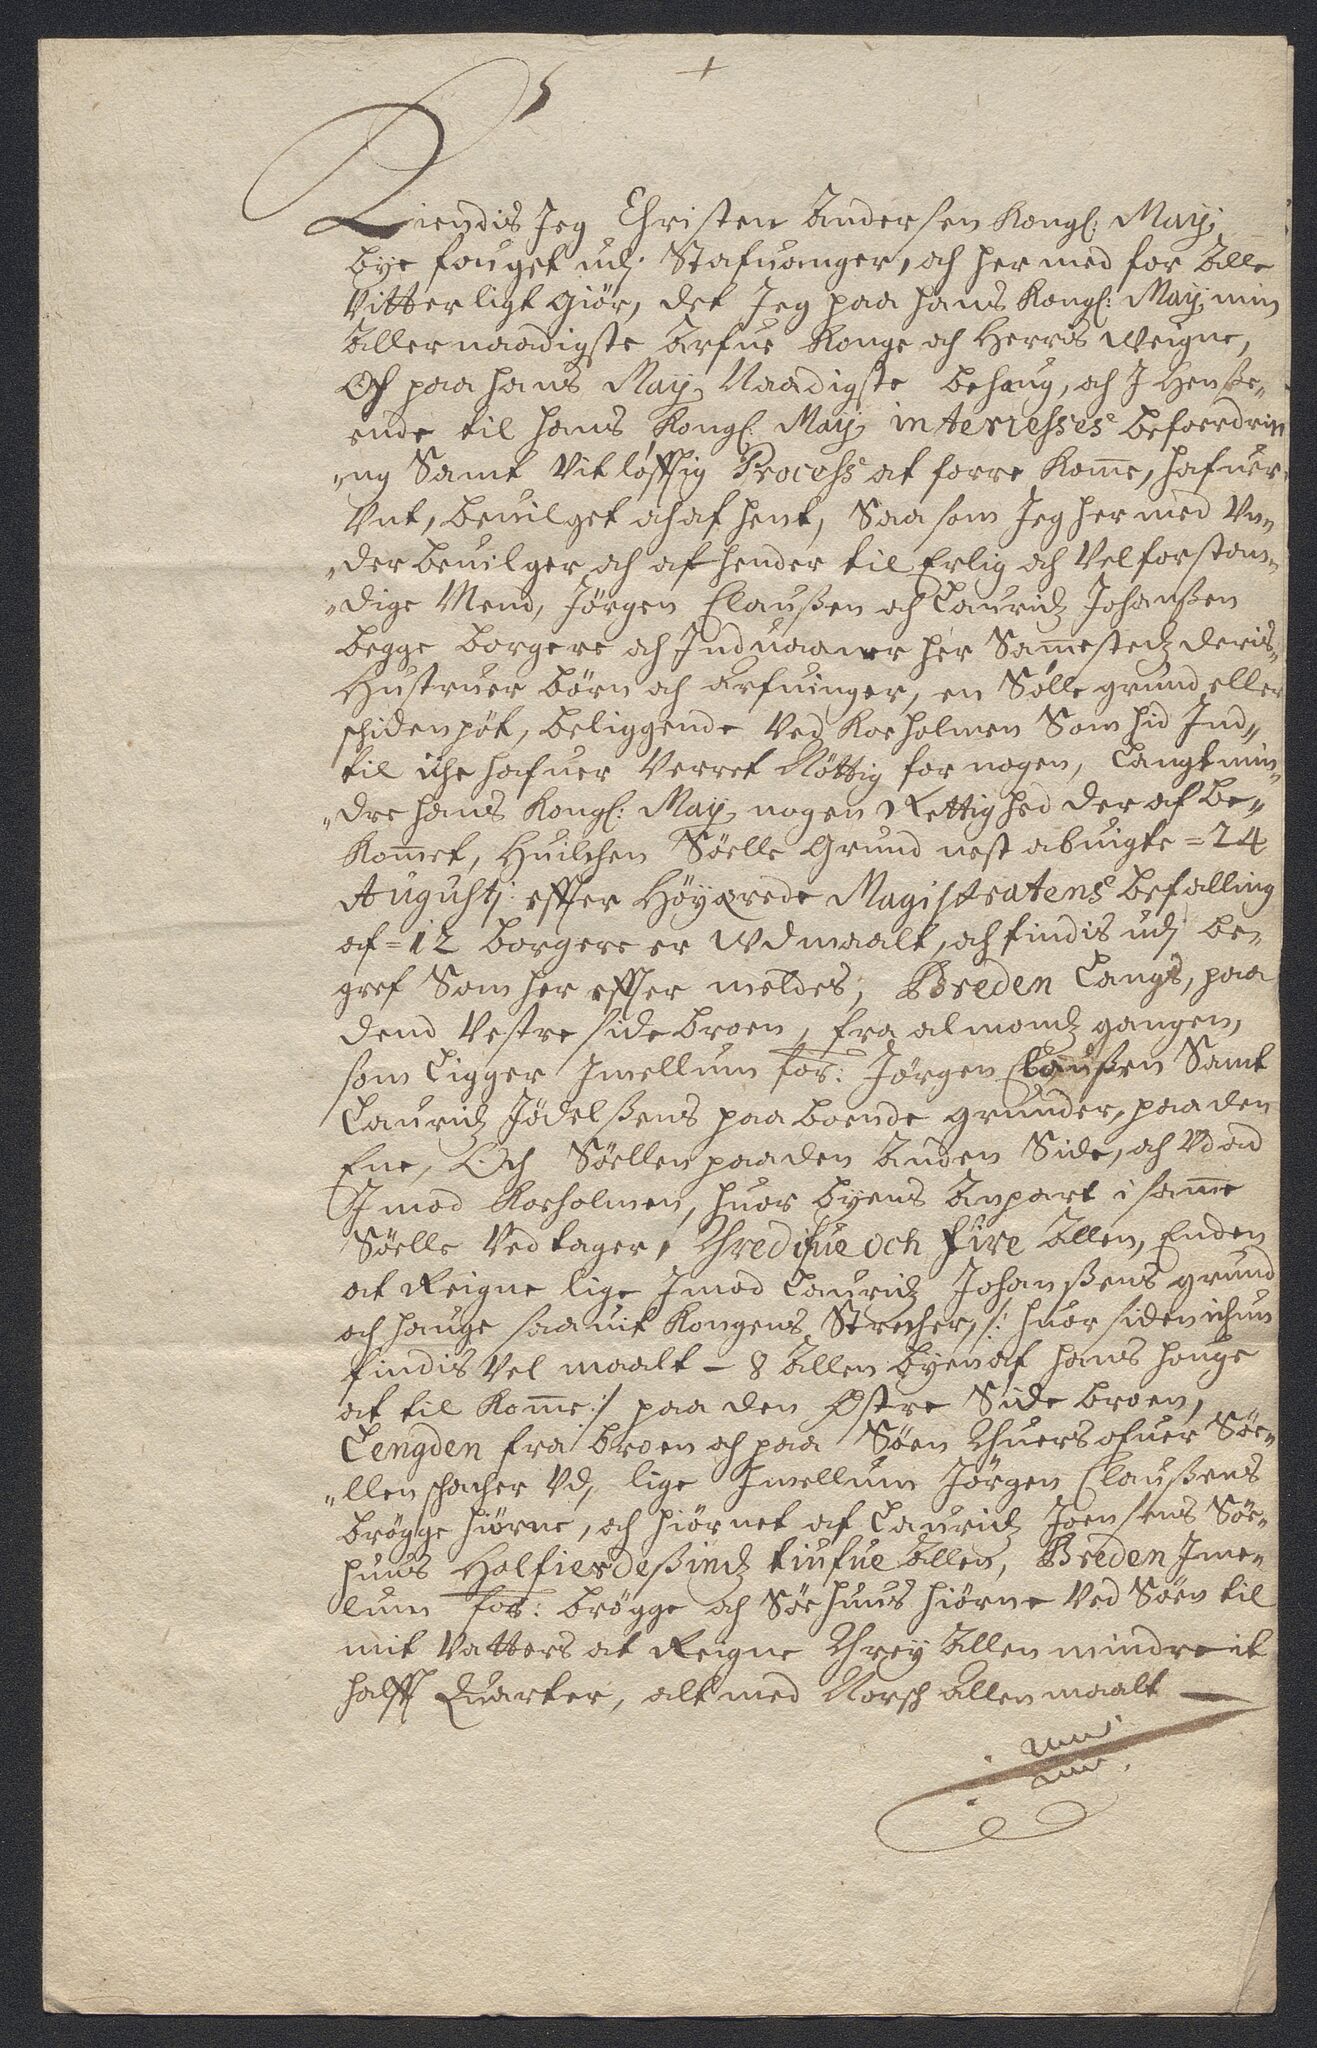 Kiendis Jeg Christen Andersen Kongl: May:
bye fouget udj Stafuanger, och her med for Alle
Vitterligt Giör, det Jeg paa hans Kongl: May: min
Aller naadigste Arfue Konge och Herris Weigne,
Och paa hans May: Naadigste behaug, och J Henße„
ende til hans Kongl: May: interresses befoerdrin
„ng Samt Vitløfftig Process at forre Kom̅e, hafuer
Unt, beuilget och af hent, Saa som Jeg her med Un„
„der beuilger och af hender til Erlig och Velforstan„
„dige Mend, Jørgen Claußen och Lauridz Johanßen
begge borgere och Induaaner her Sam̅estedz deris
Hustruer børn och arfuinger, en Sølle grund eller
schidenpøt, beliggende Ved Koeholmen Som hid Ind„
til iche hafuer Verret Nøttig for nogen, Langt min„
„dre hans Kongl: May: nogen Rettighed der af be„
Kom̅et, Huilchen Søelle Grund nest abuigte = 24
Augustj effter Höyærede Magistratens befalling
af = 12 borgere er Udmaalt, och findis udj be„
gref Som her effter meldes, Breden Langs, paa
dend Vestre side broen, fra almondz gangen,
som Ligger Jmellum for: Jørgen Claußen Samt
Lauridz Jødelßens paa boende grunder, paa den
Ene, Och Søellen paa den Anden Side, och Vd ad
J mod Koeholmen, huor byens Anpart i sam̅e
Søelle Ved tager, Thredifue och fire Allen, Enden
at Reigne lige Jmod Lauridz Johanßens grund
och hauge saauit Kongens Strecher, /: huor siden ichun
findis Vel maalt – 8 Allen byen af hans hauge
at til Kom̅e :/ paa den Østre Side broen,
Lengden fra broen och paa Søen Thuers ofuer Søe„
„llen schacher Vd, lige Jmellum Jørgen Claußens
brøgge hiørne, och hiørnet af Lauridz Joensens Søe„
huus Halfierdeßindz tiufue Allen, Breden Jme„
lum for: brøgge och Søe huus hiørne Ved Søen til
mit Vatters at Reigne Threy Allen mindre it
halff Quarter, alt med Norsch Allen maalt –